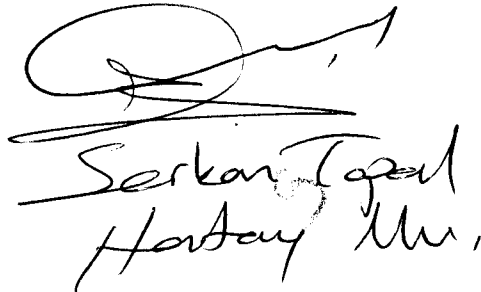 Serkan Topal
Hatay Mü.